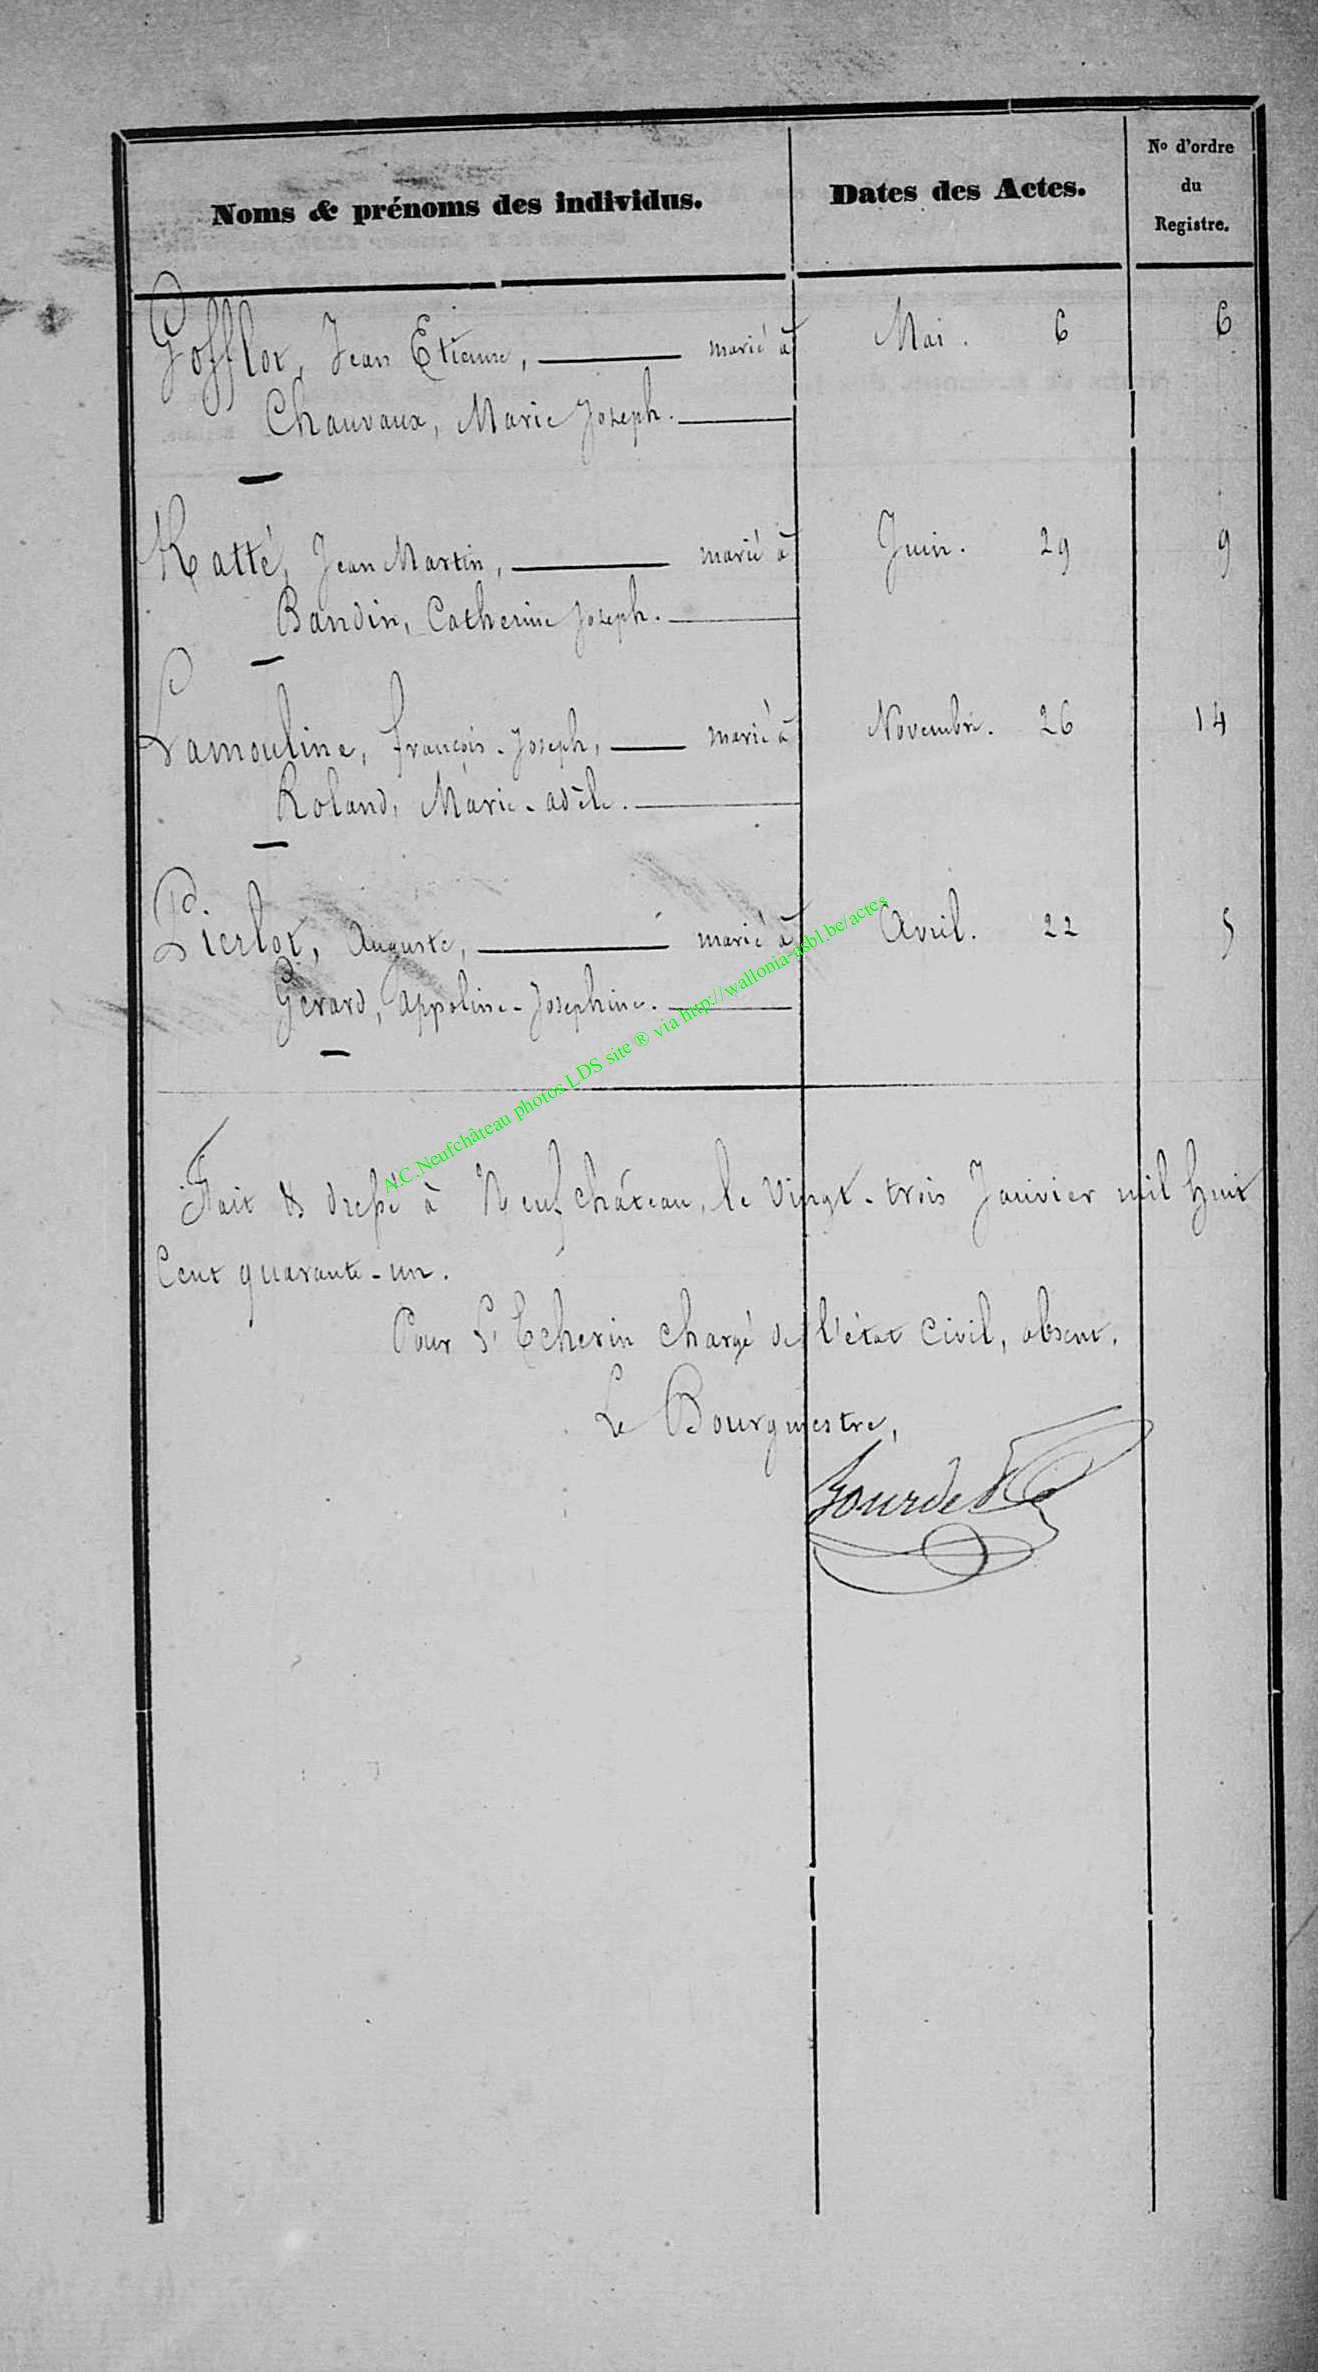 Noms & prénoms des individus. Dates des Actes. No d'ordre du Registre.
Gofflot, Jean Etienne, marié à Mai. 6 6
Chauvaux, Marie Joseph.
Katté, Jean Martin, marié à Juin. 29 9
Baudin, Catherine Joseph.
Lamouline, françois-Joseph, marié à Novembre. 26 14
Roland, Marie-adèle.
Pierlot, Auguste, marié à Avril. 22 5
Gérard, Appoline-Josephine.
A.C.Neufchâteau photos LDS site ® via http://wallonia-asbl.be/actes
Fait & dressé à Neufchâteau, le Vingt-trois Janvier mil huit
Cent quarante-un.
Pour l'Echevin chargé de l'état Civil, absent.
Le Bourgmestre,